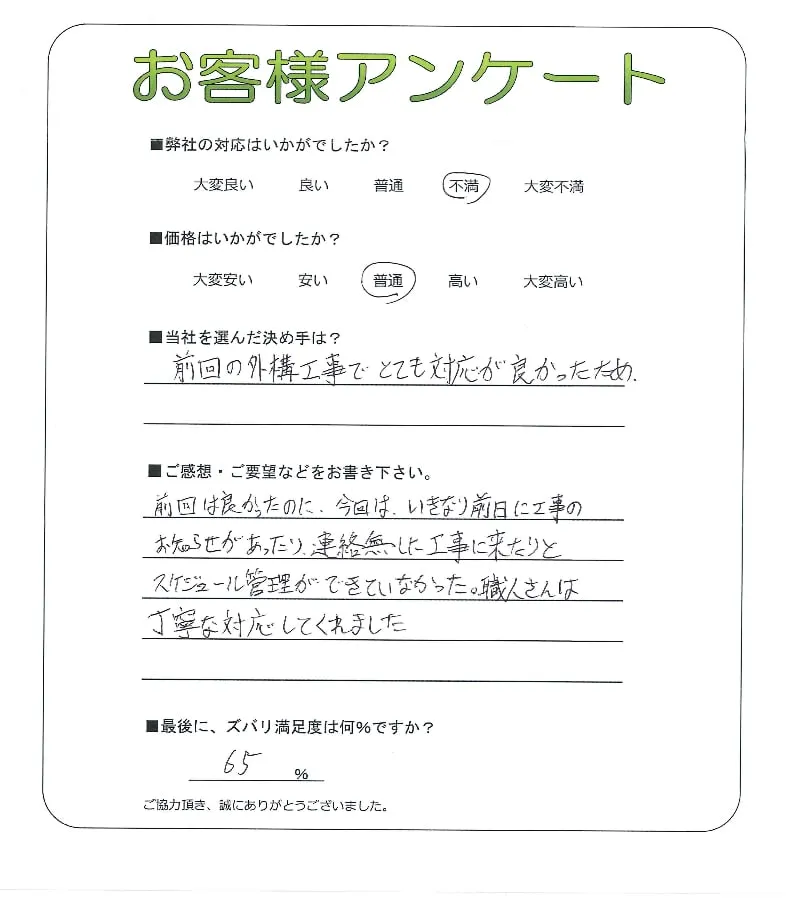 お客様アンケート
■弊社の対応はいかがでしたか？
大変良い 良い 普通 不満 大変不満
■価格はいかがでしたか？
大変安い 安い 普通 高い 大変高い
■当社を選んだ決め手は？
前回の外構工事でとても対応が良かったため.
■ご感想・ご要望などをお書き下さい。
前回は良かったのに、今回は、いきなり前日に工事の
お知らせがあったり、連絡無しした工事に来たりと
スケジュール管理ができていなかった。職人さんは
丁寧な対応してくれました
■最後に、ズバリ満足度は何%ですか？
65 %
ご協力頂き、誠にありがとうございました。